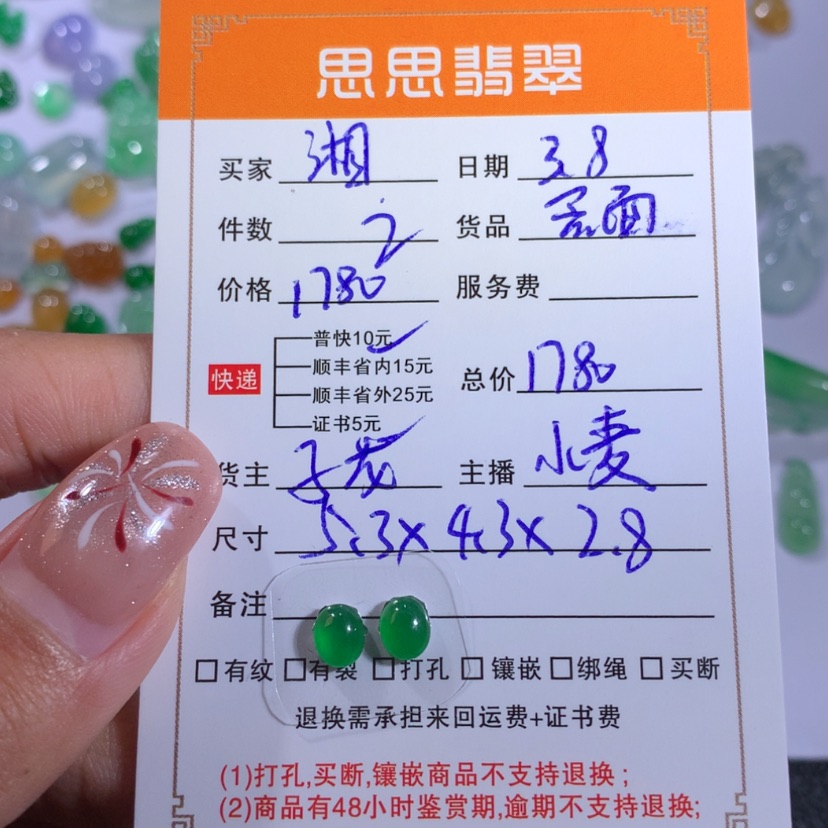 思思翡翠
买家 湘 日期 3.8
件数 2 货品 蛋面
价格 1780 服务费
快递
普快10元
顺丰省内15元
顺丰省外25元
证书5元
总价 1780
货主 主播 小麦
尺寸 5.3x4.3x2.8
备注
□有纹 □有裂 □打孔 □镶嵌 □绑绳 □买断
退换需承担来回运费+证书费
(1)打孔,买断,镶嵌商品不支持退换;
(2)商品有48小时鉴赏期,逾期不支持退换;